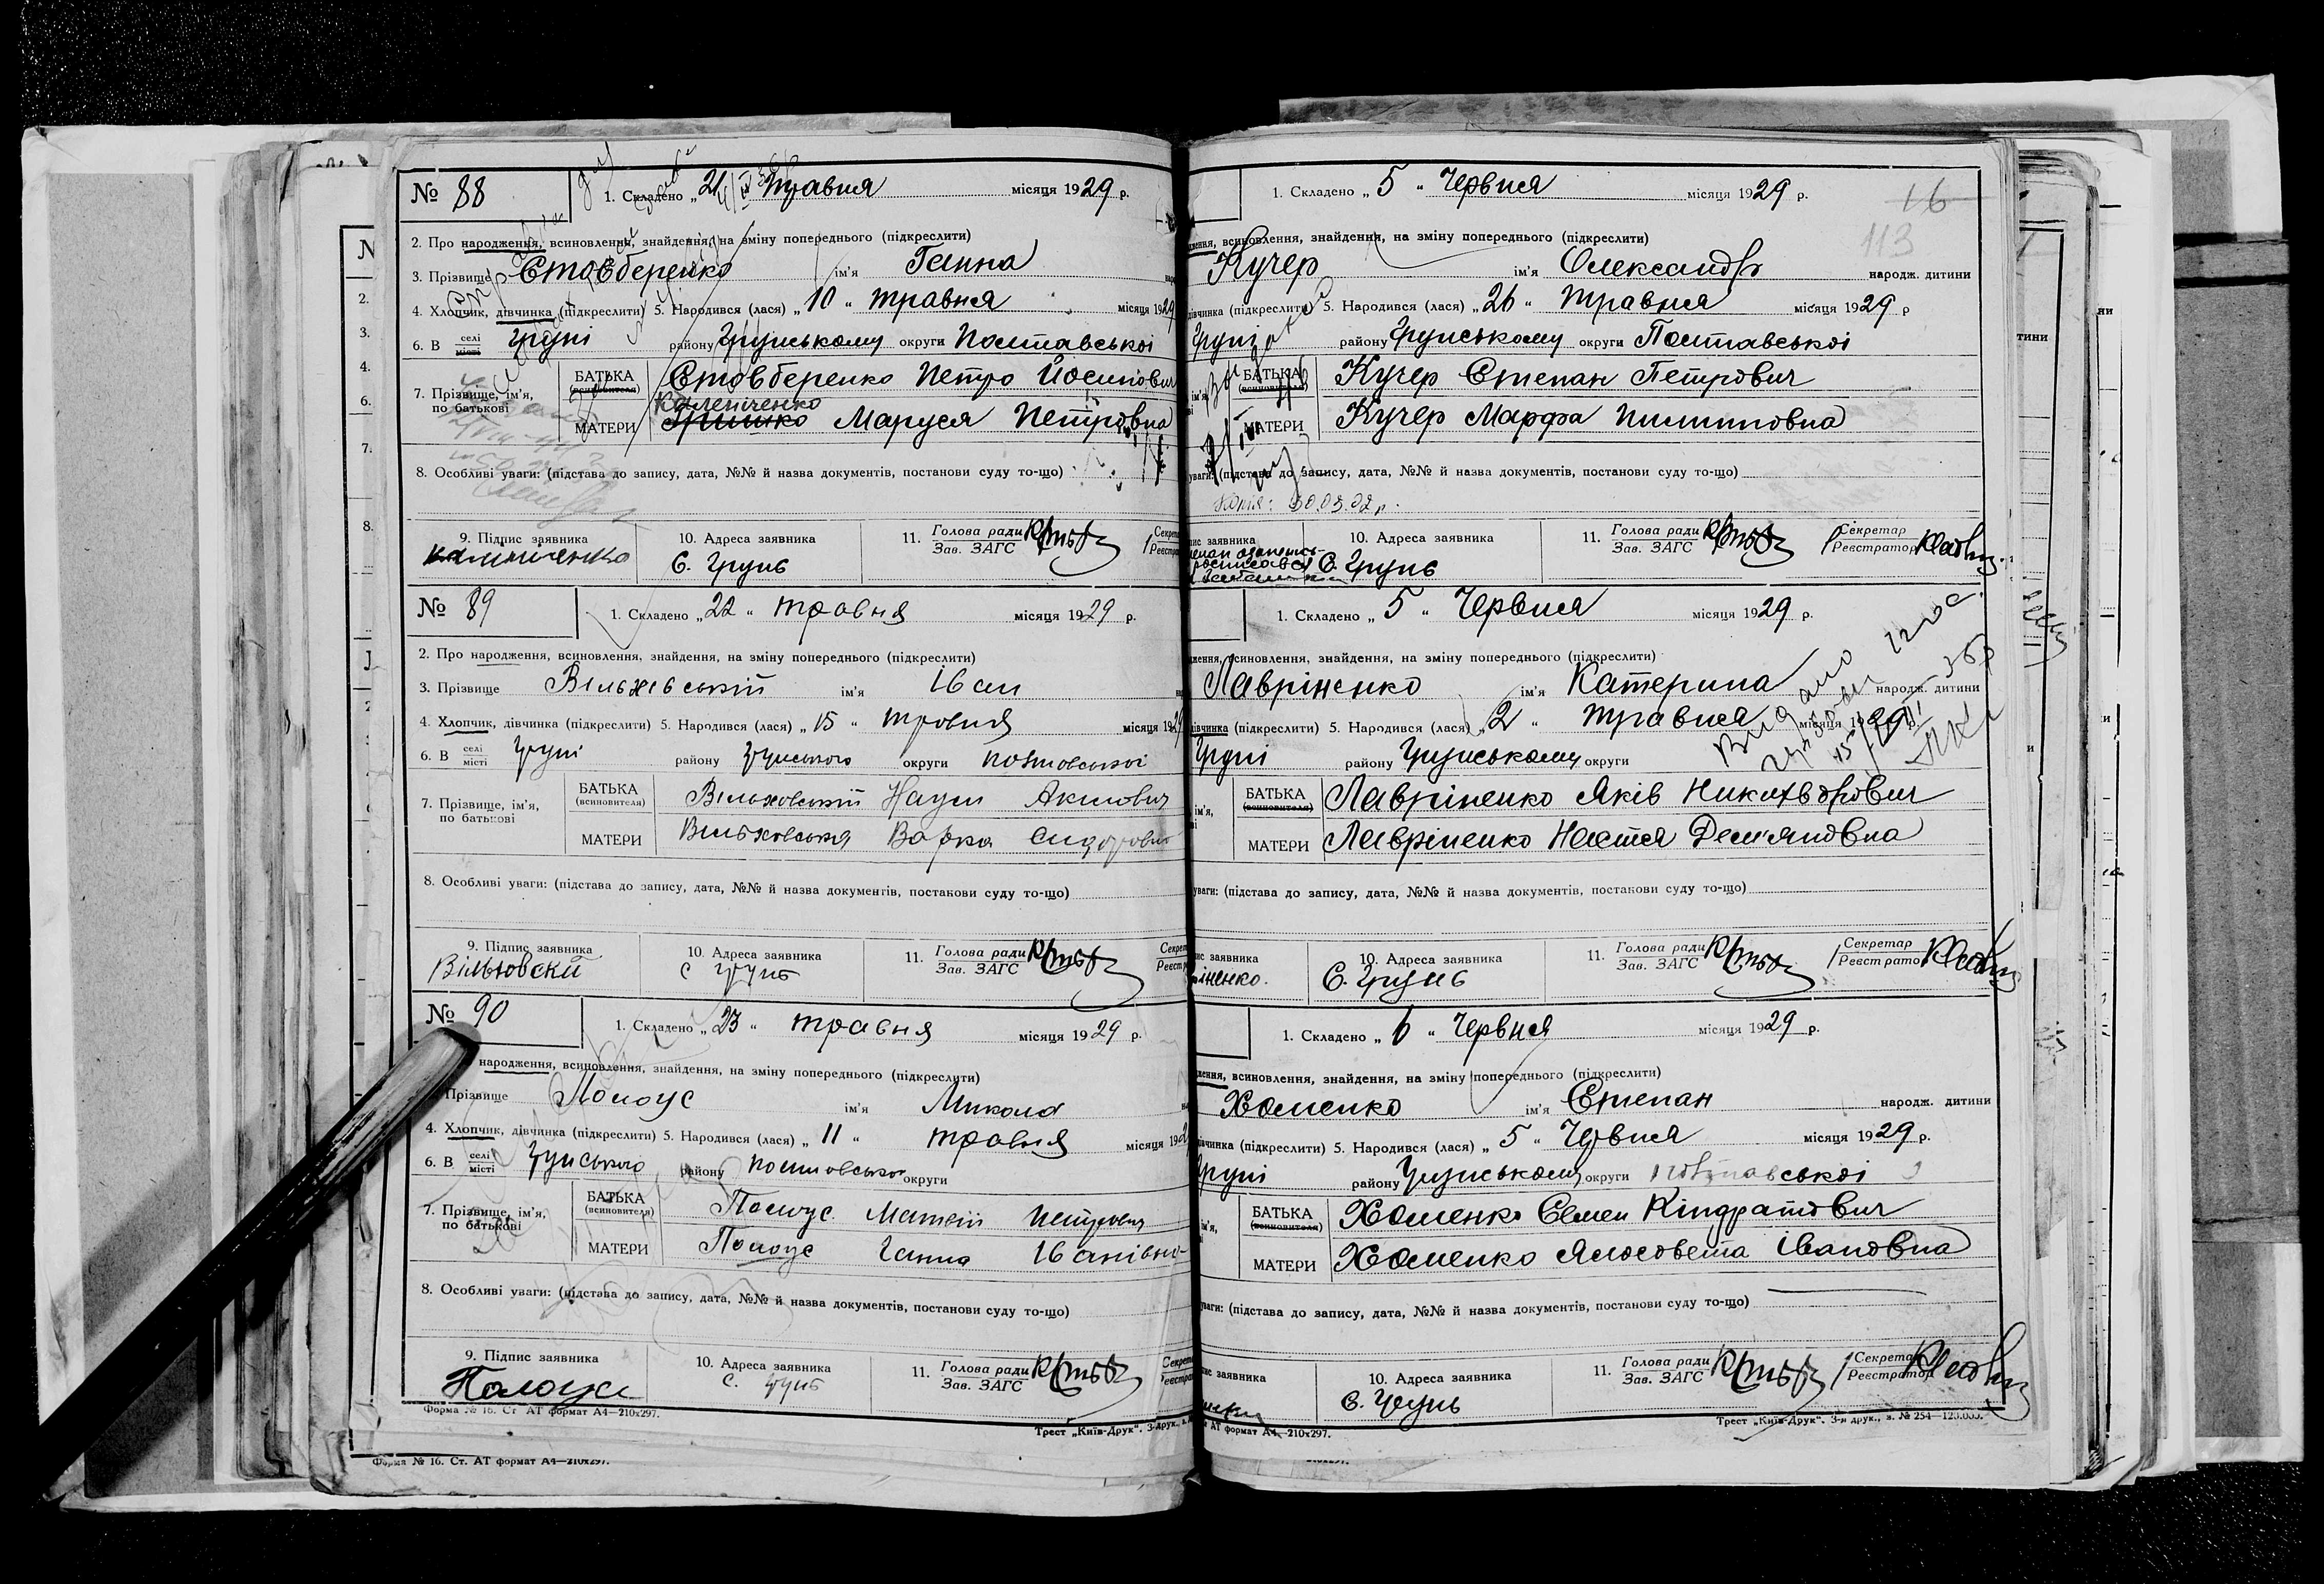 № 88
1. Складено „ 21 “ травня місяця 1929 р.
2. Про народження, всиновлення, знайдення, на зміну попереднього (підкреслити)
3. Прізвище Стовберенко ім'я Ганна
4. Хлопчик, дівчинка (підкреслити) 5. Народився (лася) „ 10 “ травня місяця 1929
6. В селі місті Груні району Грунському округи Полтавської
7. Прізвище, ім'я, по батькові
БАТЬКА (всиновителя) Стовберенко Петро Йосипович
Калениченко
МАТЕРИ Гришко Маруся Петровна
8. Особливі уваги: (підстава до запису, дата, №№ й назва документів, постанови суду то-що)
9. Підпис заявника
10. Адреса заявника С. Грунь
11. Голова ради Зав. ЗАГС
№ 89
1. Складено „ 22 “ травня місяця 1929 р.
2. Про народження, всиновлення, знайдення, на зміну попереднього (підкреслити)
3. Прізвище Вільхівський ім'я Іван
4. Хлопчик, дівчинка (підкреслити) 5. Народився (лася) „ 15 “ травня місяця 1929
6. В селі місті Груні району Грунського округи Полтавської
7. Прізвище, ім'я, по батькові
БАТЬКА (всиновителя) Вільховський Наум Акимович
МАТЕРИ Вільховська Варка Сидоровна
8. Особливі уваги: (підстава до запису, дата, №№ й назва документів, постанови суду то-що)
9. Підпис заявника
10. Адреса заявника с Грунь
11. Голова ради Зав. ЗАГС
№ 90
1. Складено „ 23 “ травня місяця 1929 р.
народження, всиновлення, знайдення, на зміну попереднього (підкреслити)
Прізвище Полоус ім'я Микола
4. Хлопчик, дівчинка (підкреслити) 5. Народився (лася) „ 11 “ травня місяця 192
6. В селі місті Грунського району Полтавської округи
7. Прізвище, ім'я, по батькові
БАТЬКА (всиновителя) Полоус Матвій Петрович
МАТЕРИ Полоус Ганна Іванівна
8. Особливі уваги: (підстава до запису, дата, №№ й назва документів, постанови суду то-що)
9. Підпис заявника Полоус
10. Адреса заявника с. Грунь
11. Голова ради Зав. ЗАГС
Форма № 16. Ст. АТ формат А4—210х297.
Трест „Київ-Друк“. 3-
Форма № 16. Ст. АТ формат А4—210х297.
1. Складено „ 5 “ Червня місяця 1929 р.
16
113
всиновлення, знайдення, на зміну попереднього (підкреслити)
Кучер ім'я Олександр народж. дитини
дівчинка (підкреслити) 5. Народився (лася) „ 26 “ травня місяця 1929 р
Груні району Грунському округи Полтавської
БАТЬКА (всиновителя) Кучер Степан Петрович
МАТЕРИ Кучер Марфа Пилиповна
уваги: (підстава до запису, дата, №№ й назва документів, постанови суду то-що)
Копія: 30.03.92 р.
10. Адреса заявника С. Грунь
11. Голова ради Зав. ЗАГС
Секретар Реєстратор
1. Складено „ 5 “ Червня місяця 1929 р.
всиновлення, знайдення, на зміну попереднього (підкреслити)
Лавріненко ім'я Катерина народж. дитини
дівчинка (підкреслити) 5. Народився (лася) „ 2 “ травня місяця 1929 р.
Видано
Груні району Грунському округи
БАТЬКА (всиновителя) Лавріненко Яків
МАТЕРИ Лавріненко Настя Дем'яновна
уваги: (підстава до запису, дата, №№ й назва документів, постанови суду то-що)
10. Адреса заявника С. Грунь
11. Голова ради Зав. ЗАГС
Секретар Реєстратор
1. Складено „ 6 “ Червня місяця 1929 р.
всиновлення, знайдення, на зміну попереднього (підкреслити)
Хоменко ім'я Степан народж. дитини
дівчинка (підкреслити) 5. Народився (лася) „ 5 “ Червня місяця 1929 р.
Груні району Грунському округи Полтавської
БАТЬКА (всиновителя) Хоменко Семен Кіндратович
МАТЕРИ Хоменко Ялосовета Івановна
уваги: (підстава до запису, дата, №№ й назва документів, постанови суду то-що)
заявника
10. Адреса заявника С. Грунь
11. Голова ради Зав. ЗАГС
Секретар Реєстратор
АТ формат А4—210х297.
Трест „Київ-Друк“. 3-я друк., з. № 254—125.000.